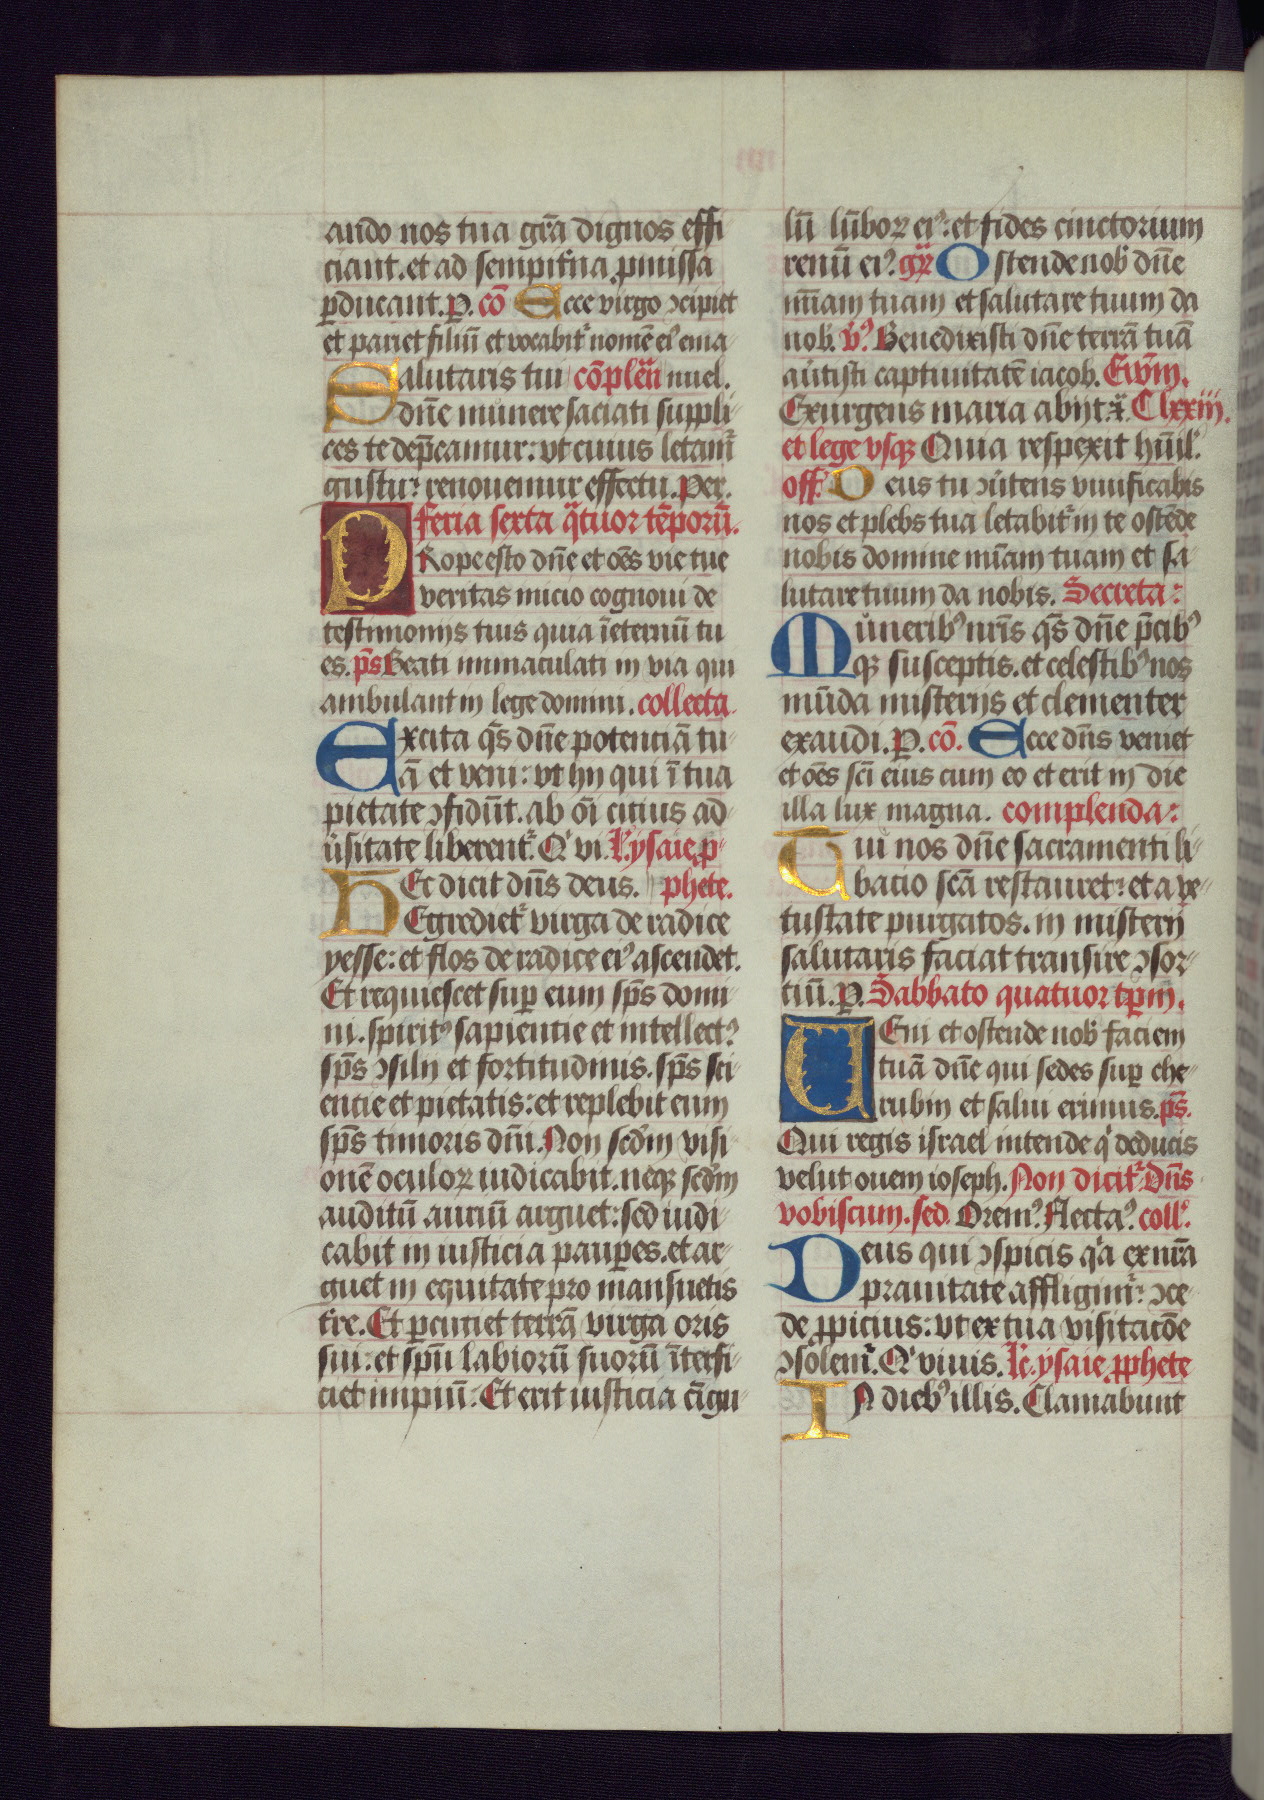 ando nos tua gr̄a dignos effi
ciant. et ad sempit̄na ꝓmissa
ꝑducant. P. cō Ecce virgo ꝯcipiet
et pariet filiū et vocabit᷑ nomē eiꝰ ema
Salutaris tui cōplēn nuel.
dn̄e munere saciati suppli
ces te dep̄camur: vt cuius letam᷑
gustu: renouemur effectu. Per.
feria sexta q̄tuor tēporū.
PRope esto dn̄e et oēs vie tue
veritas inicio cognoui de
testimonijs tuis quia ī eternū tu
es. p̄s Beati immaculati in via qui
ambulant in lege domini. collecta
Excita q̄s dn̄e potenciā tu
ā et veni: vt hij qui ī tua
pietate ꝯfidūt. ab oī citius ad
ūsitate liberent᷑. Qͥ vi. L. ysaie ꝓ
HEc dicit dn̄s deus. phete.
Egrediet᷑ virga de radice
yesse: et flos de radice eiꝰ ascendet.
Et requiescet suꝑ eum sp̄s domi
ni. spiritꝰ sapientie et intellectꝰ
sp̄s ꝯsilij et fortitudinis. sp̄s sci
entie et pietatis: et replebit eum
sp̄s timoris dn̄i. Non scd̄m visi
onē oculoꝝ iudicabit. neqꝫ scd̄m
auditū auriū arguet: sed iudi
cabit in iusticia pauꝑes. et ar
guet in equitate pro mansuetis
t̄re. Et ꝑcuciet terrā virga oris
sui: et sp̄u labiorū suorū īterfi
ciet impiū: Et erit iusticia cīgu
lū lūboꝝ eiꝰ: et fides cinctorium
renū eiꝰ. gr̄ Ostende nob̄ dn̄e
mīam tuam et salutare tuum da
nob̄. v̄ꝰ Benedixisti dn̄e terrā tuā
aūtisti captiuitatē iacob. Ewm̄.
Exurgens maria abijt. Clxxiij.
et lege vsqꝫ Quia respexit hūil̄.
off. Deus tu ꝯūtens viuificabis
nos et plebs tua letabit᷑ in te ostēde
nobis domine mīam tuam et sa
lutare tuum da nobis. Secreta:
Muneribꝰ nr̄is q̄s dn̄e p̄cibꝰ
qꝫ susceptis. et celestibꝰ nos
mūda misterijs et clementer
exaudi. P. cō. Ecce dn̄s veniet
et oēs sc̄i eius cum eo et erit in die
illa lux magna. complenda:
Tui nos dn̄e sacramenti li
bacio sc̄a restauret: et a ve
tustate purgatos. in misterij
salutaris faciat transire ꝯsor
ciū. P. Sabbato quatuor tꝑm̄.
UEni et ostende nob̄ faciem
tuā dn̄e qui sedes suꝑ che
rubin et salui erimus. p̄s.
Qui regis israel intende qͥ deducis
velut ouem ioseph. Non dicit᷑ Dn̄s
vobiscum. sed Oremꝰ. Flectaꝰ. coll.
Deus qui ꝯspicis qͣa ex nr̄a
prauitate affligim᷑: ꝯce
de ꝓpicius: vt ex tua visitacōe
ꝯsolem᷑. Qͥ viuis. Lc̄. ysaie ꝓphete
IN diebꝰ illis. Clamabunt